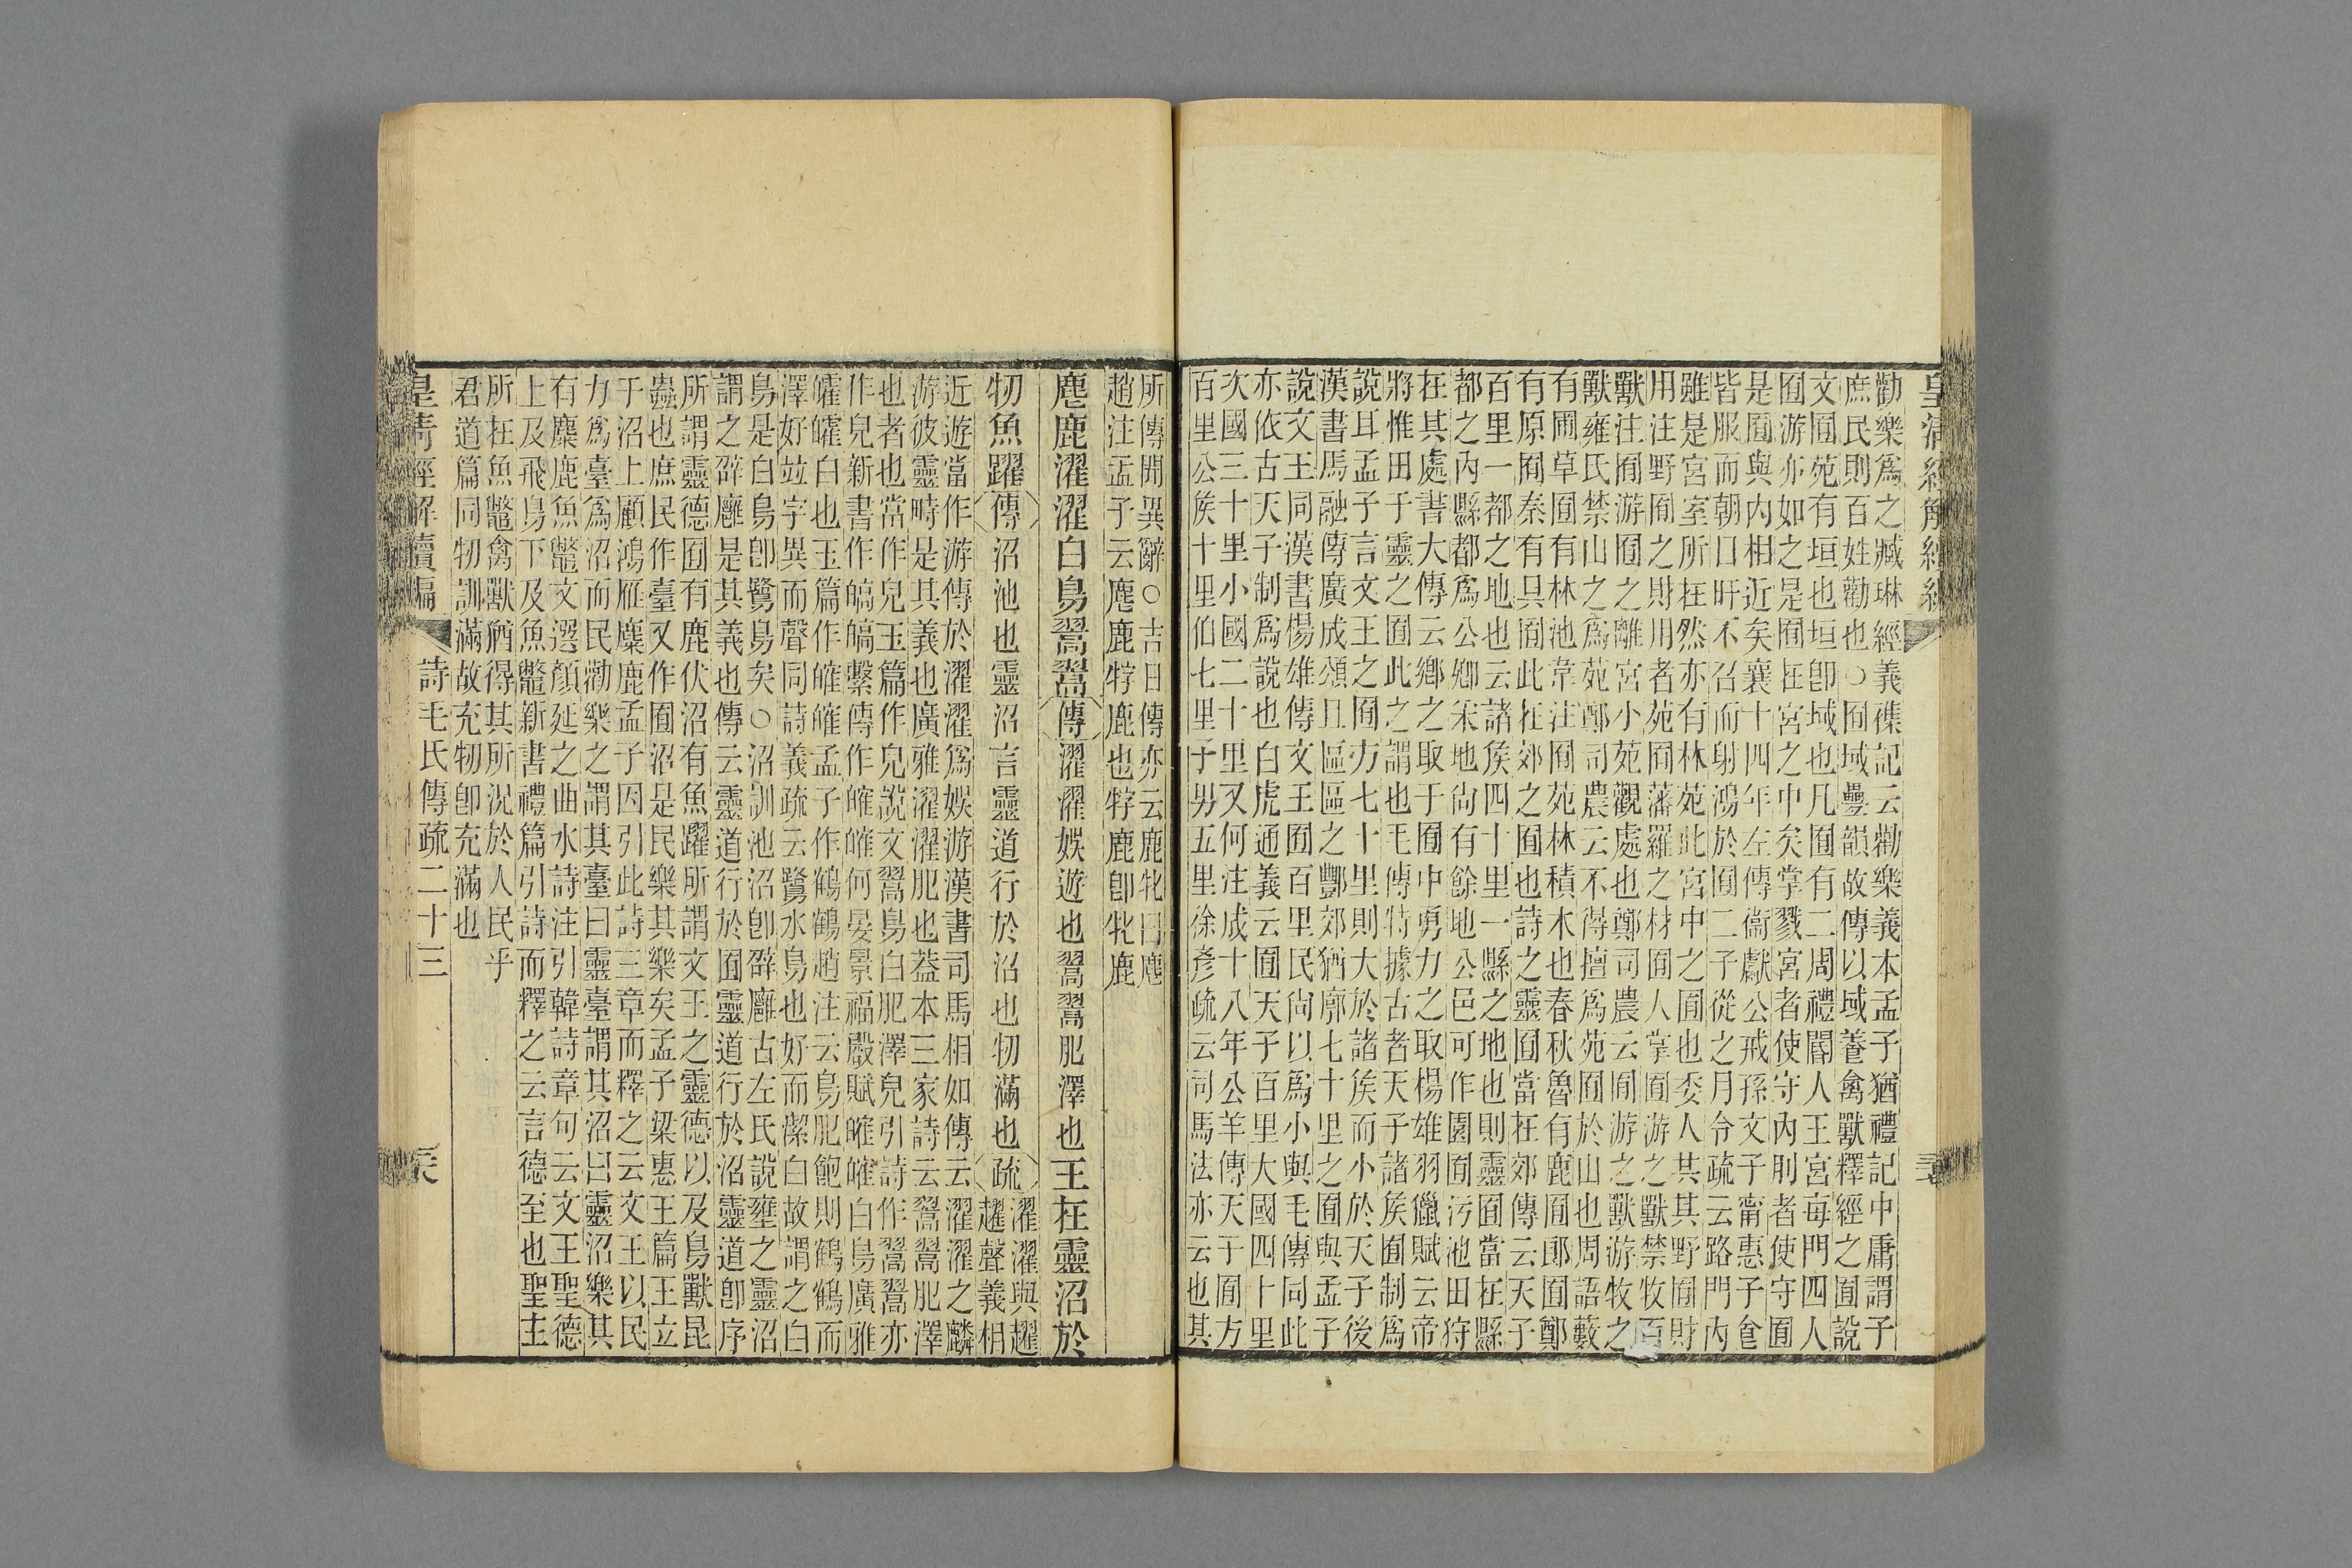 皇清經解續編
勸樂爲之臧琳經義襍記云勸樂義本孟子猶禮記中庸謂子
庶民則百姓勸也○囿域疊韻故傳以域養禽獸釋經之囿說
文囿苑有垣也垣卽域也凡囿有二周禮閽人王宮每門四人
囿游亦如之是囿在宮之中矣掌戮宮者使守內刖者使守囿
是囿與內相近矣襄十四年左傳衞獻公戒孫文子甯惠子食
皆服而朝日旰不召而射鴻於囿二子從之月令疏云路門內
雖是宮室所在然亦有林苑此宮中之囿也委人其其野囿財
用注野囿之財用者苑囿藩羅之材囿人掌囿游之獸禁牧百
獸注囿游囿之離宮小苑觀處也鄭司農云囿游之獸游牧之
獸雍氏禁山之爲苑鄭司農云不得擅爲苑囿於山也周語藪
有圃草囿有林池韋注囿苑林積木也春秋魯有鹿囿郎囿鄭
有原囿秦有具囿此在郊之囿也詩之靈囿當在郊傳云天子
百里一都之地也云諸矦四十里一縣之地也則靈囿當在縣
都之內縣都爲公卿采地尙有餘地公邑可作園囿污池田狩
在其處書大傳云鄉之取于囿中勇力之取楊雄羽獵賦云帝
將惟田于靈之囿此之謂也毛傳特據古者天子諸矦囿制爲
說耳孟子言文王之囿方七十里則大於諸矦而小於天子後
漢書馬融傳廣成頌且區區之酆郊猶廓七十里之囿與孟子
說文王同漢書楊雄傳文王囿百里民尙以爲小與毛傳同此
亦依古天子制爲說也白虎通義云囿天子百里大國四十里
次國三十里小國二十里又何注成十八年公羊傳天子囿方
百里公矦十里伯七里子男五里徐彥疏云司馬法亦云也其
所傳聞異辭○吉日傳亦云鹿牝曰麀
趙注孟子云麀鹿牸鹿也牸鹿卽牝鹿
麀鹿濯濯白鳥翯翯傳濯濯娛遊也翯翯肥澤也王在靈沼於
牣魚躍傳沼池也靈沼言靈道行於沼也牣滿也疏濯濯與趯趯聲義相
近遊當作游傳於濯濯爲娛游漢書司馬相如傳云濯濯之麟
游彼靈畤是其義也廣雅濯濯肥也葢本三家詩云翯翯肥澤
也者也當作皃玉篇作皃說文翯鳥白肥澤皃引詩作翯翯亦
作皃新書作皜皜繫傳作皠皠何晏景福殿賦皠皠白鳥廣雅
皬皬白也玉篇作皠皠孟子作鶴鶴趙注云鳥肥飽則鶴鶴而
澤好竝字異而聲同詩義疏云鷺水鳥也好而潔白故謂之白
鳥是白鳥卽鷺鳥矣○沼訓池沼卽辟廱古左氏說壅之靈沼
謂之辟廱是其義也傳云靈道行於囿靈道行於沼靈道卽序
所謂靈德囿有鹿伏沼有魚躍所謂文王之靈德以及鳥獸昆
蟲也庶民作臺又作囿沼是民樂其樂矣孟子梁惠王篇王立
于沼上顧鴻雁麋鹿孟子因引此詩三章而釋之云文王以民
力爲臺爲沼而民勸樂之謂其臺曰靈臺謂其沼曰靈沼樂其
有麋鹿魚鼈文選顏延之曲水詩注引韓詩章句云文王聖德
上及飛鳥下及魚鼈新書禮篇引詩而釋之云言德至也聖主
所在魚鼈禽獸猶得其所況於人民乎
君道篇同牣訓滿故充牣卽充滿也
皇清經解續編 詩毛氏傳疏二十三